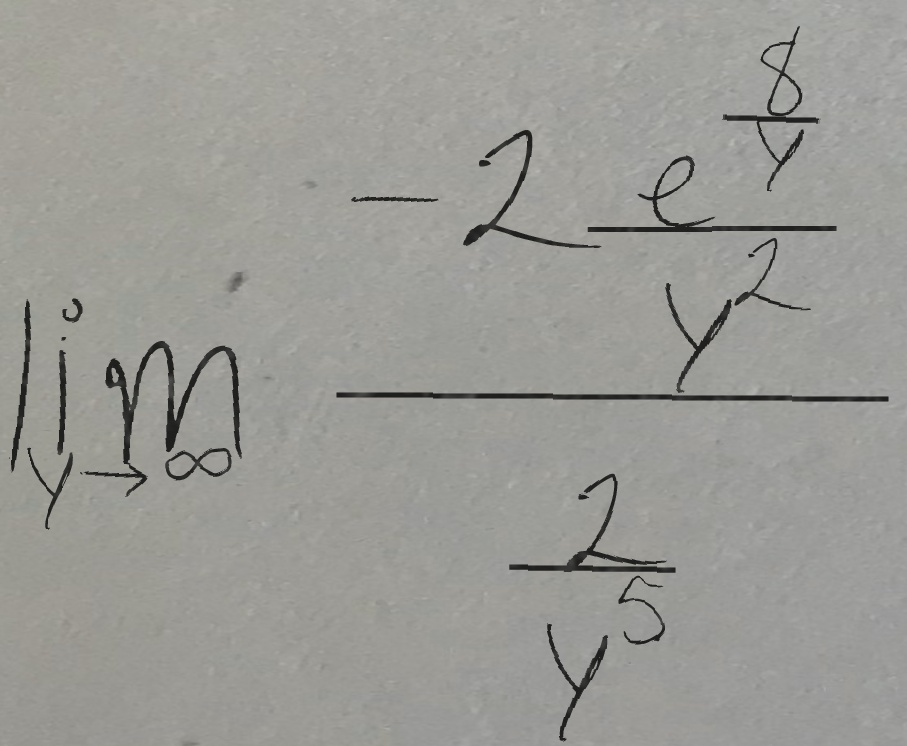 \lim_{y \to \infty} \frac{-2 \frac{e^{\frac{8}{y}}}{y^2}}{\frac{2}{y^5}}